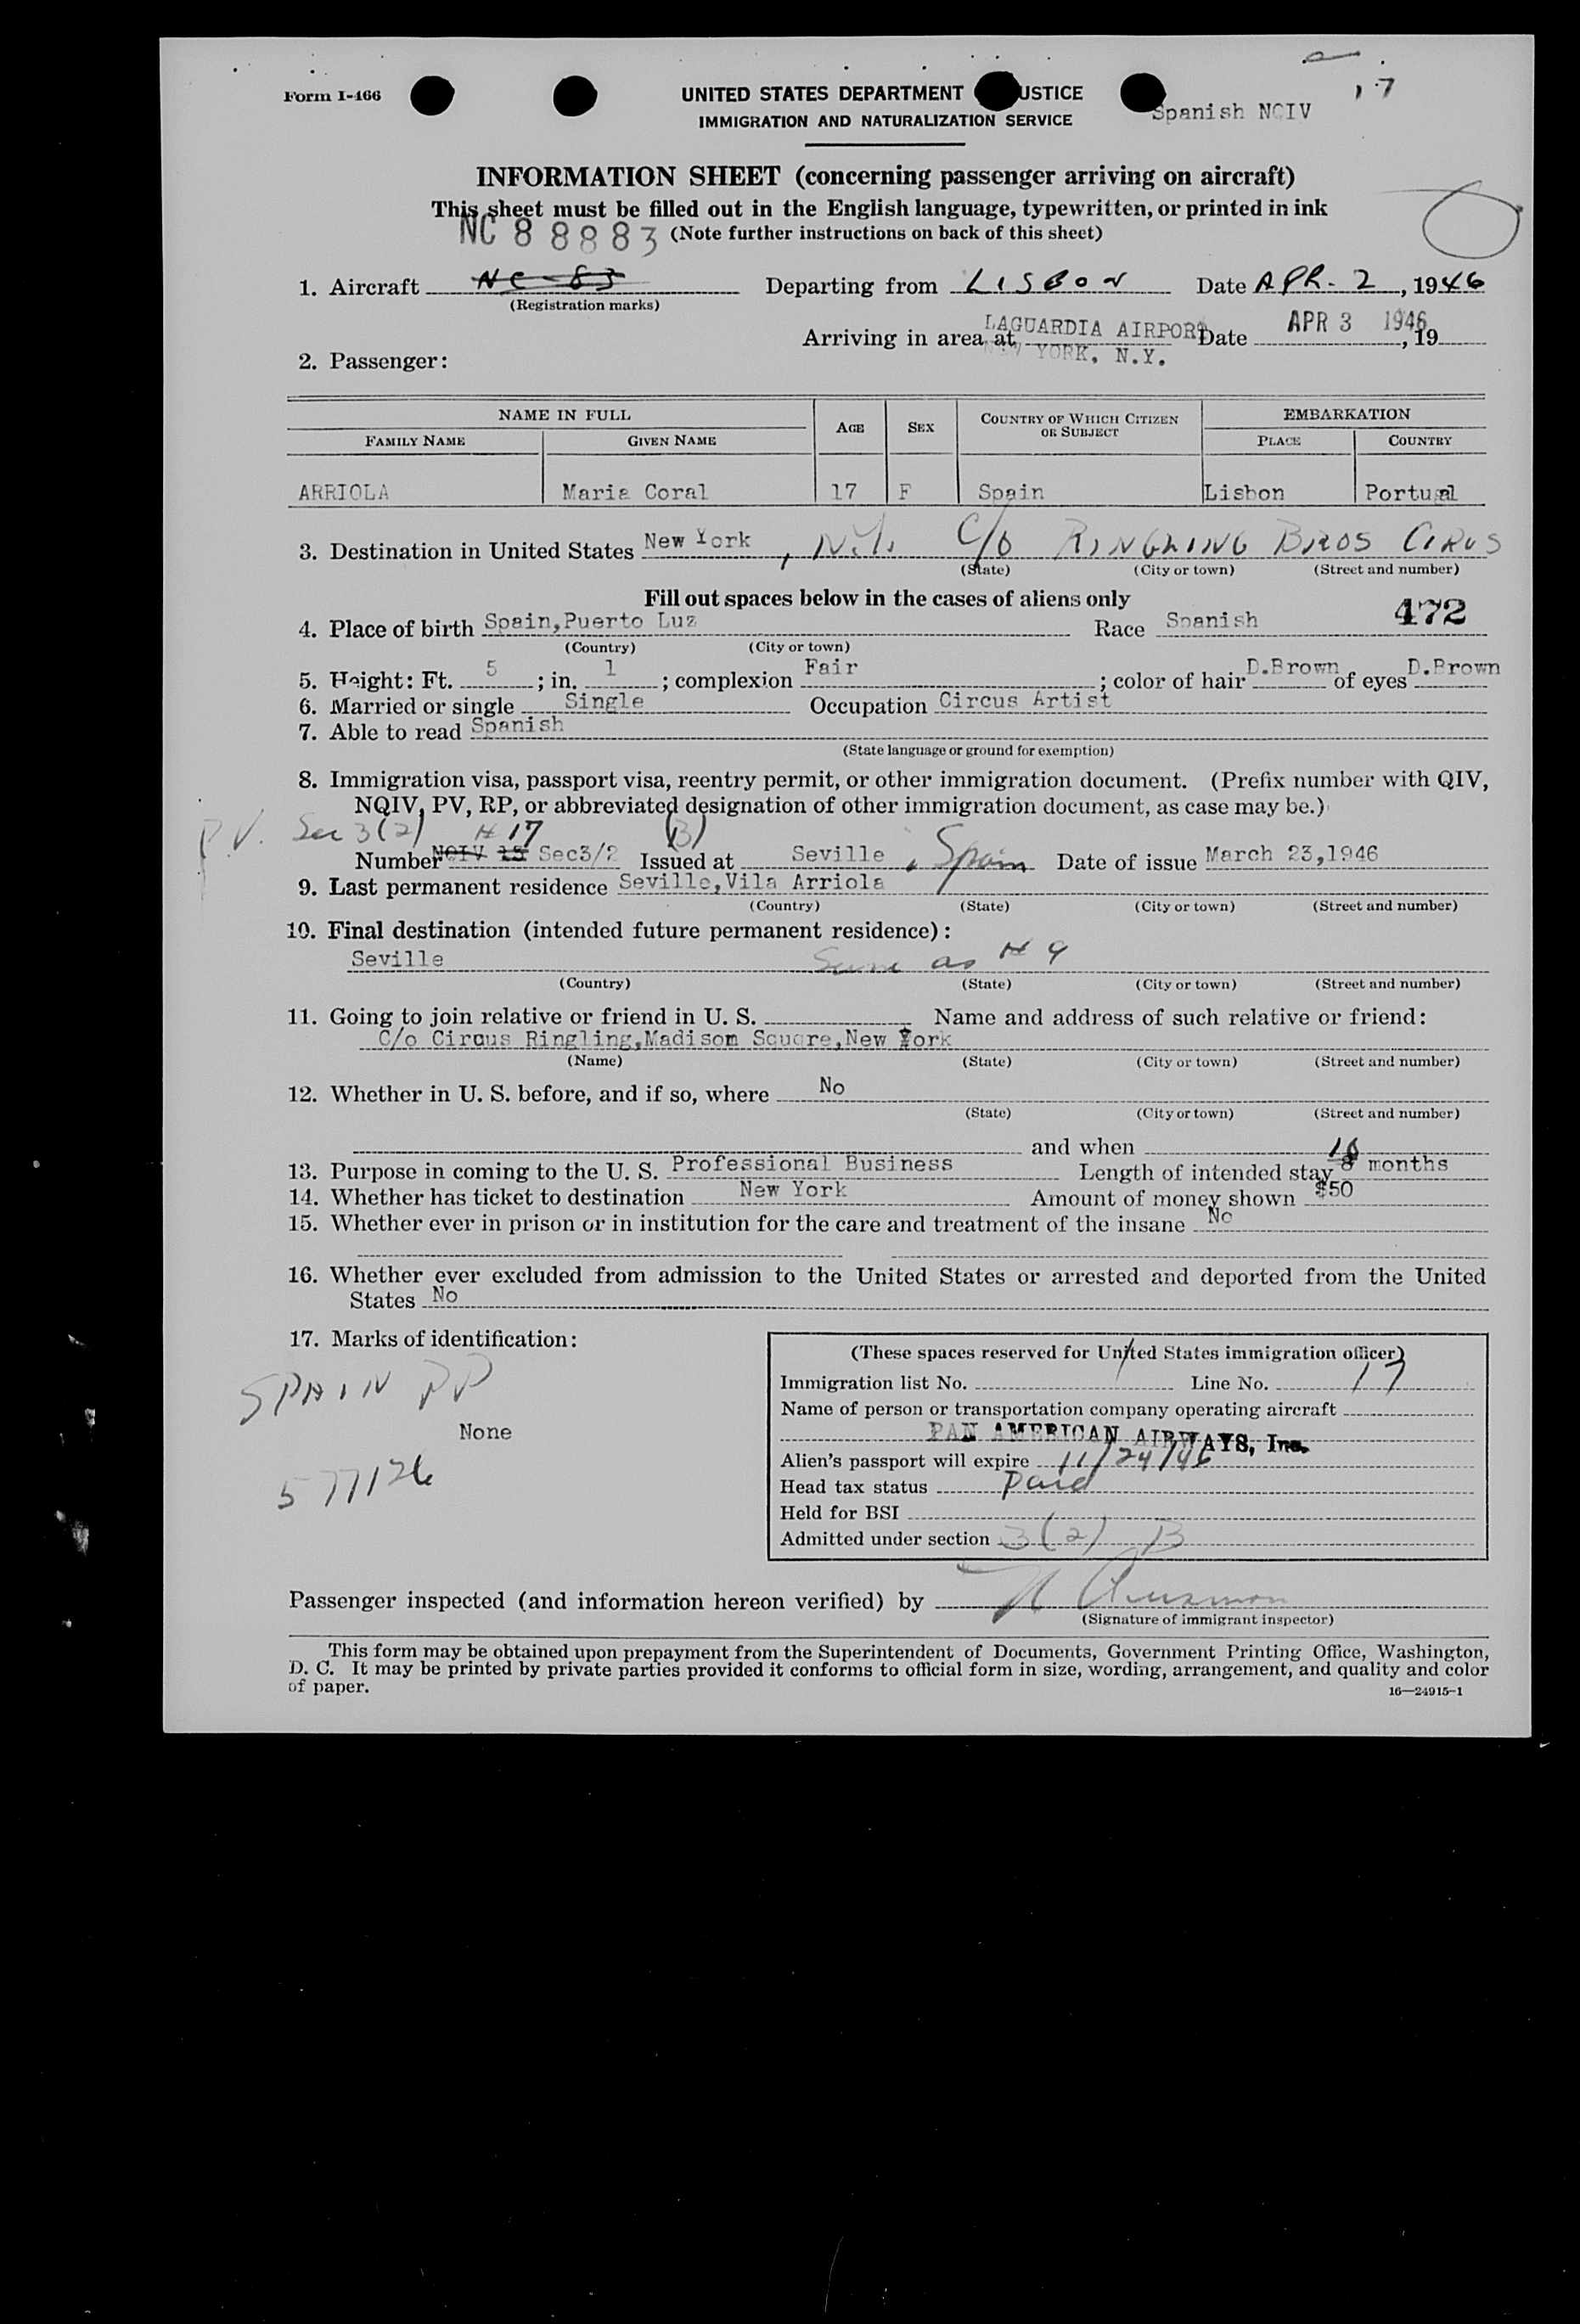 Form I-466
UNITED STATES DEPARTMENT USTICE
IMMIGRATION AND NATURALIZATION SERVICE
Spanish NCIV
17
INFORMATION SHEET (concerning passenger arriving on aircraft)
This sheet must be filled out in the English language, typewritten, or printed in ink
NC 88883 (Note further instructions on back of this sheet)
1. Aircraft NC-83 Departing from LISBON Date APR. 2, 1946
(Registration marks)
Arriving in area at LAGUARDIA AIRPORT Date APR 3 1946, 19
NEW YORK, N.Y.
2. Passenger:
NAME IN FULL AGE SEX COUNTRY OF WHICH CITIZEN OR SUBJECT EMBARKATION
FAMILY NAME GIVEN NAME PLACE COUNTRY
ARRIOLA Maria Coral 17 F Spain Lisbon Portugal
3. Destination in United States New York, N.Y. C/o RINGLING BROS CIRUS
(State) (City or town) (Street and number)
Fill out spaces below in the cases of aliens only
4. Place of birth Spain,Puerto Luz Race Spanish 472
(Country) (City or town)
5. Height: Ft. 5; in. 1; complexion Fair; color of hair D.Brown of eyes D.Brown
6. Married or single Single Occupation Circus Artist
7. Able to read Spanish
(State language or ground for exemption)
8. Immigration visa, passport visa, reentry permit, or other immigration document. (Prefix number with QIV,
NQIV, PV, RP, or abbreviated designation of other immigration document, as case may be.)
P.V. Sec 3(2) # 17 (B)
Number NCIV 15 Sec3/2 Issued at Seville, Spain Date of issue March 23,1946
9. Last permanent residence Seville,Vila Arriola
(Country) (State) (City or town) (Street and number)
10. Final destination (intended future permanent residence):
Seville Same as # 9
(Country) (State) (City or town) (Street and number)
11. Going to join relative or friend in U. S. Name and address of such relative or friend:
C/o Circus Ringling,Madison Square,New York
(Name) (State) (City or town) (Street and number)
12. Whether in U. S. before, and if so, where No
(State) (City or town) (Street and number)
and when
13. Purpose in coming to the U. S. Professional Business Length of intended stay 8 10 months
14. Whether has ticket to destination New York Amount of money shown $50
15. Whether ever in prison or in institution for the care and treatment of the insane No
16. Whether ever excluded from admission to the United States or arrested and deported from the United
States No
17. Marks of identification:
SPAIN PP
None
577126
(These spaces reserved for United States immigration officer)
Immigration list No. Line No. 17
Name of person or transportation company operating aircraft
PAN AMERICAN AIRWAYS, Inc.
Alien's passport will expire 11/24/46
Head tax status Paid
Held for BSI
Admitted under section 3(2) B
Passenger inspected (and information hereon verified) by
(Signature of immigrant inspector)
This form may be obtained upon prepayment from the Superintendent of Documents, Government Printing Office, Washington,
D. C. It may be printed by private parties provided it conforms to official form in size, wording, arrangement, and quality and color
of paper.
16—24915-1